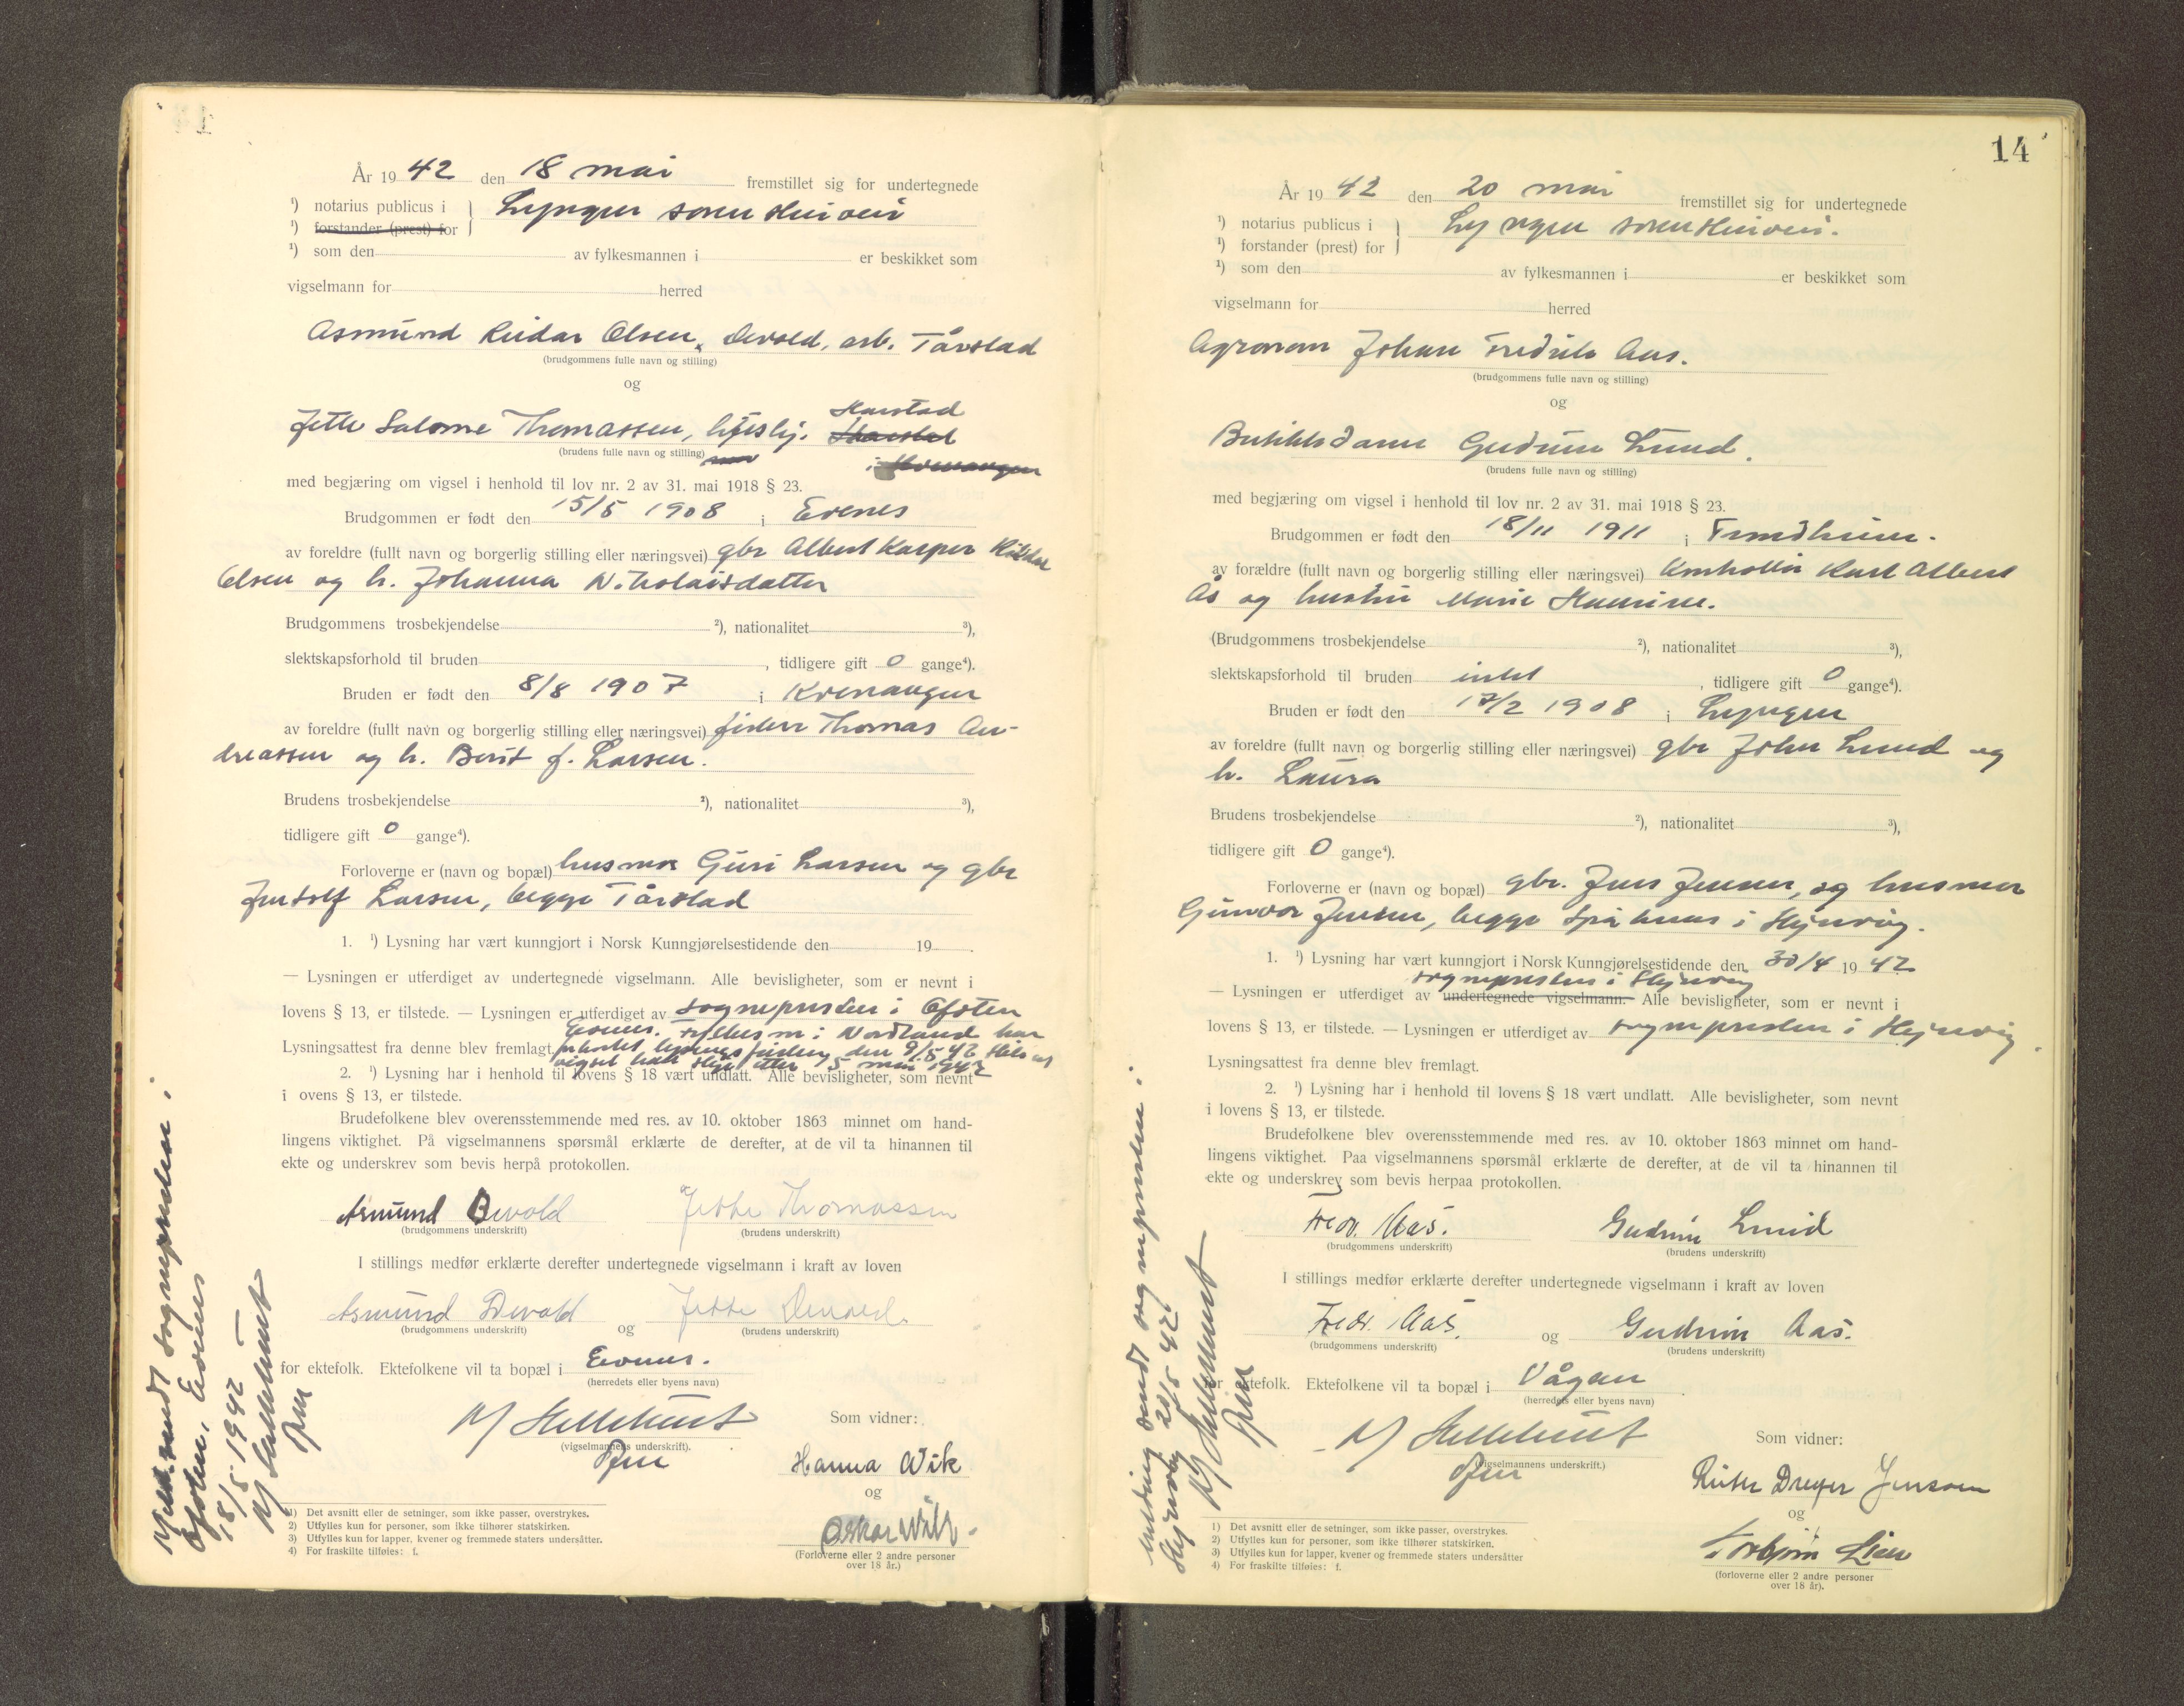 År 19 42 den 18 mai fremstillet sig for undertegnede
¹) notarius publicus i } Lyngen sorenskriveri
¹) forstander (prest) for
¹) som den av fylkesmannen i er beskikket som
vigselmann for herred
Asmund Reidar Olsen, Devold, arb. Tårstad
(brudgommens fulle navn og stilling)
og
Harstad
Jette Salome Thomassen, hushj.
(brudens fulle navn og stilling)
i Kvenangen
med begjæring om vigsel i henhold til lov nr. 2 av 31. mai 1918 § 23.
Brudgommen er født den 15/5 1908 i Evenes
av foreldre (fullt navn og borgerlig stilling eller næringsvei) gbr Albert Kasper
Olsen og h. Johanna Nikolaisdatter
Brudgommens trosbekjendelse ²), nationalitet ³),
slektskapsforhold til bruden , tidligere gift 0 gange⁴).
Bruden er født den 8/8 1907 i Kvenangen
av foreldre (fullt navn og borgerlig stilling eller næringsvei) fisker Thomas An-
dreassen og h. Berit f. Larsen.
Brudens trosbekjendelse ²), nationalitet ³),
tidligere gift 0 gange⁴).
Forloverne er (navn og bopæl) husmor Guri Larsen og gbr
Larsen, begge Tårstad
1. ¹) Lysning har vært kunngjort i Norsk Kunngjørelsestidende den 19 .
— Lysningen er utferdiget av undertegnede vigselmann. Alle bevisligheter, som er nevnt i
lovens § 13, er tilstede. — Lysningen er utferdiget av sognepresten i Ofoten
Evenes. Fylkesm. i Nordland har
Lysningsattest fra denne blev fremlagt forkortet lysningsfristen den 9/5 42 slik at
vigsel kan skje etter 15 mai 1942
2. ¹) Lysning har i henhold til lovens § 18 vært undlatt. Alle bevisligheter, som nevnt
i ovens § 13, er tilstede.
Brudefolkene blev overensstemmende med res. av 10. oktober 1863 minnet om hand-
lingens viktighet. På vigselmannens spørsmål erklærte de derefter, at de vil ta hinannen til
ekte og underskrev som bevis herpå protokollen.
Asmund Devold Jette Thomassen
(brudgommens underskrift) (brudens underskrift)
I stillings medfør erklærte derefter undertegnede vigselmann i kraft av loven
Asmund Devold og Jette Devold
(brudgommens underskrift) (brudens underskrift)
for ektefolk. Ektefolkene vil ta bopæl i Evenes.
(herredets eller byens navn)
Som vidner:
(vigselmannens underskrift).
Hanna Wik
og
Oskar Wik
(Forloverne eller 2 andre personer
over 18 år.)
1) Det avsnitt eller de setninger, som ikke passer, overstrykes.
2) Utfylles kun for personer, som ikke tilhører statskirken.
3) Utfylles kun for lapper, kvener og fremmede staters undersåtter.
4) For fraskilte tilføies: f.
Meld. sendt sognepresten i
Ofoten, Evenes
18/5 1942
14
År 19 42 den 20 mai fremstillet sig for undertegnede
¹) notarius publicus i } Lyngen sorenskriveri.
¹) forstander (prest) for
¹) som den av fylkesmannen i er beskikket som
vigselmann for herred
Agronom Johan Fredrik Aas.
(brudgommens fulle navn og stilling)
og
Butikkdame Gudrun Lund.
(brudens fulle navn og stilling)
med begjæring om vigsel i henhold til lov nr. 2 av 31. mai 1918 § 23.
Brudgommen er født den 18/11 1911 i Trondheim.
av forældre (fullt navn og borgerlig stilling eller næringsvei) kontrollør Karl Albert
Ås og hustru Marie
(Brudgommens trosbekjendelse ²), nationalitet ³),
slektskapsforhold til bruden intet , tidligere gift 0 gange⁴).
Bruden er født den 17/2 1908 i Lyngen
av foreldre (fullt navn og borgerlig stilling eller næringsvei) gbr John Lund og
h. Laura
Brudens trosbekjendelse ²), nationalitet ³),
tidligere gift 0 gange⁴).
Forloverne er (navn og bopæl) gbr. Jens Jensen, og husmor
Gunvor Jensen, begge Spåknes i Skjervøy.
1. ¹) Lysning har vært kunngjort i Norsk Kunngjørelsestidende den 30/4 19 42
sognepresten i Skjervøy
— Lysningen er utferdiget av undertegnede vigselmann. Alle bevisligheter, som er nevnt i
lovens § 13, er tilstede. — Lysningen er utferdiget av sognepresten i Skjervøy.
Lysningsattest fra denne blev fremlagt.
2. ¹) Lysning har i henhold til lovens § 18 vært undlatt. Alle bevisligheter, som nevnt
i lovens § 13, er tilstede.
Brudefolkene blev overensstemmende med res. av 10. oktober 1863 minnet om hand-
lingens viktighet. Paa vigselmannens spørsmål erklærte de derefter, at de vil ta hinannen til
ekte og underskrev som bevis herpaa protokollen.
Fredr. Aas. Gudrun Lund
(brudgommens underskrift) (brudens underskrift)
I stillings medfør erklærte derefter undertegnede vigselmann i kraft av loven
Fredr. Aas. og Gudrun Aas.
(brudgommens underskrift) (brudens underskrift)
for ektefolk. Ektefolkene vil ta bopæl i Vågan
(herredets eller byens navn)
Som vidner:
(vigselmannens underskrift.)
Dreyer Jensen
og
Torbjørn Lien
(forloverne eller 2 andre personer
over 18 år).
1) Det avsnitt eller de setninger, som ikke passer, overstrykes.
2) Utfylles kun for personer, som ikke tilhører statskirken.
3) Utfylles kun for lapper, kvener og fremmede staters undersåtter
4) For fraskilte tilføies: f.
Melding sendt sognepresten i
Skjervøy 20/5 42